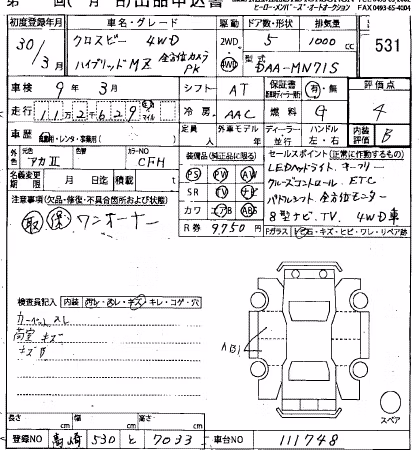 出品申込書
ヒーロー・メンバーズ・オートオークション
FAX0493-65-4004
初度登録年月 車名・グレード 駆動 ドア数・形状 排気量
30年 3月 クロスビー 4WD
ハイブリッドMZ 全方位カメラPK
2WD 4WD 5 1000cc
型式 DAA-MN71S
531
車検 9年 3月 シフト AT 保証書 有・無 評価点 4
走行 112629 km マイル 冷房 AAC 燃料 G
車歴 自家用・レンタ・事業用 定員 人 外車モデル 年 ディーラー・並行 ハンドル 左・右 内装評価 B
外色 元色 アカII 色替 カラーNO CFH
装備品(純正品に限る)
PS PW AW
SR TV ナビ
カワ エアB ABS
セールスポイント(正常に作動するもの)
LEDヘッドライト キーフリー
クルーズコントロール ETC
パドルシフト 全方位モニター
8型ナビ TV 4WD車
名義変更期限 月 日迄 積載 t
R券 9,750円
Fガラス 石・キズ・ヒビ・ワレ・リペア跡
注意事項(欠品・修復・不具合箇所および状態)
取 保 ワンオーナー
検査員記入 内装 汚レ・キズ・キレ・コゲ・穴
カーペットスレ
荷室キズ
AB1
スペア
長さ cm 幅 cm 高さ cm
登録NO 高崎 530 と 7033 車台NO 111748